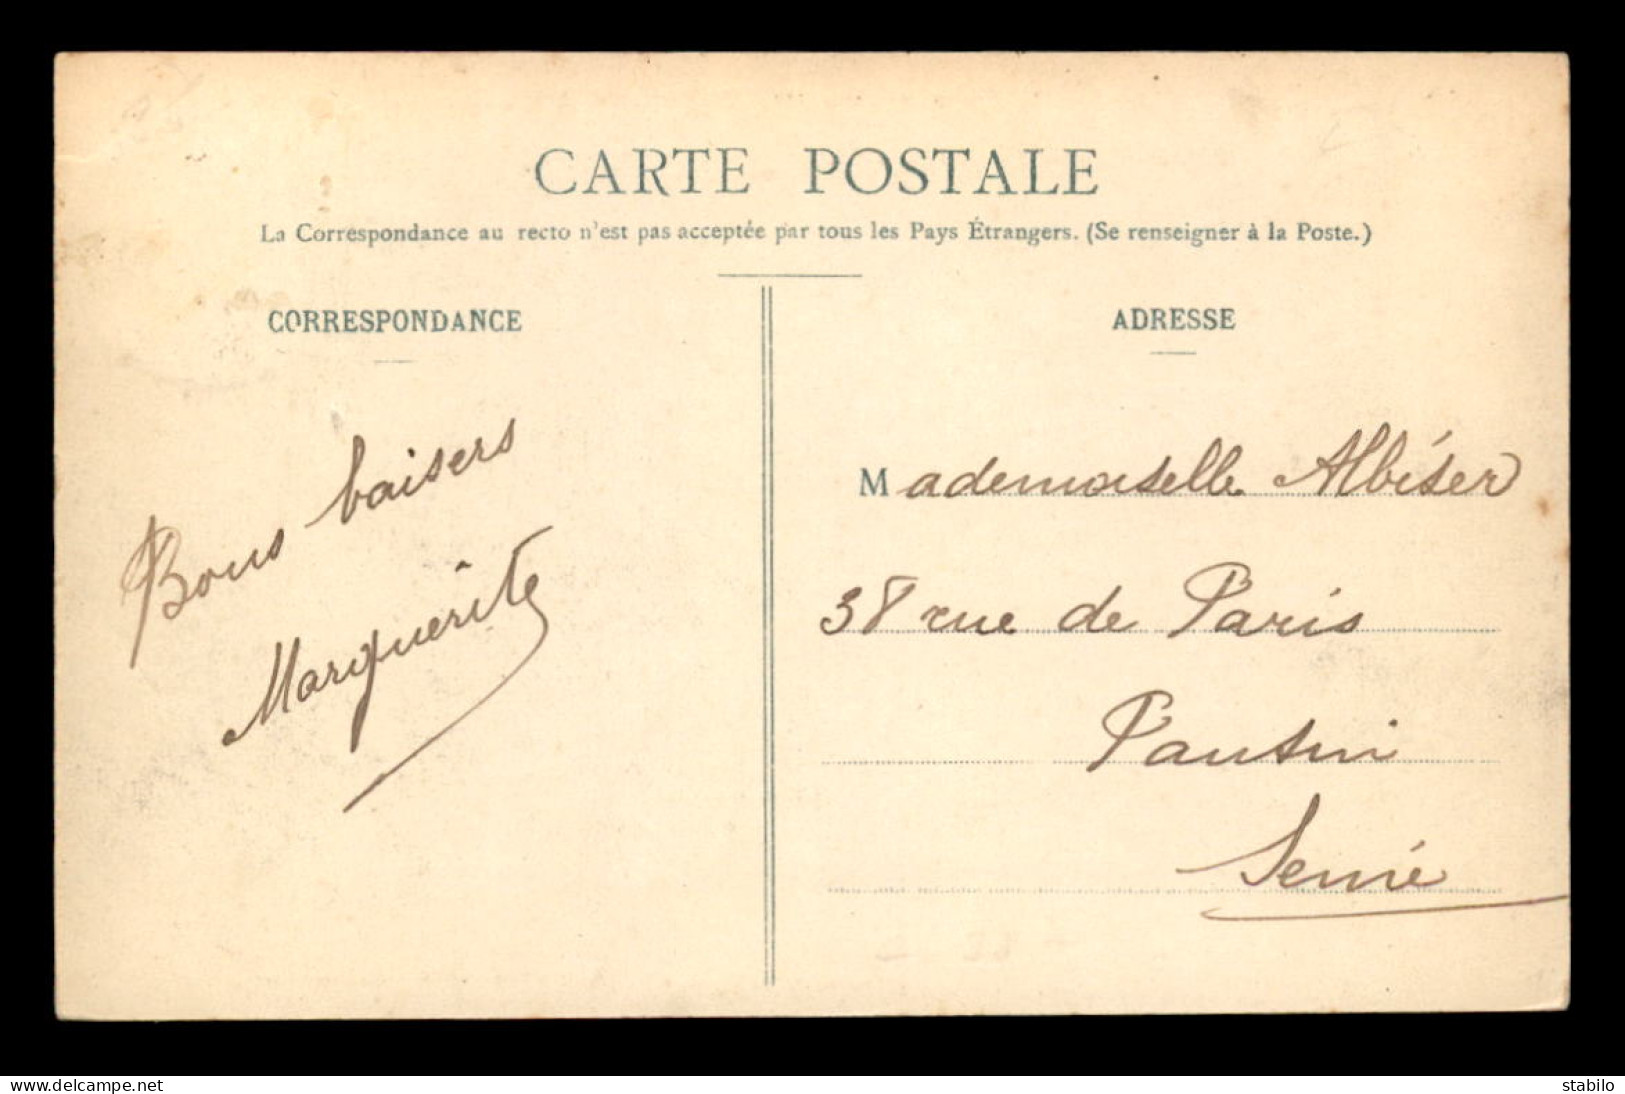 CARTE POSTALE
La Correspondance au recto n'est pas acceptée par tous les Pays Étrangers. (Se renseigner à la Poste.)
CORRESPONDANCE
Bons baisers
Marguerite
ADRESSE
Mademoiselle Albiser
38 rue de Paris
Pantin
Seine
www.delcampe.net
stabilo